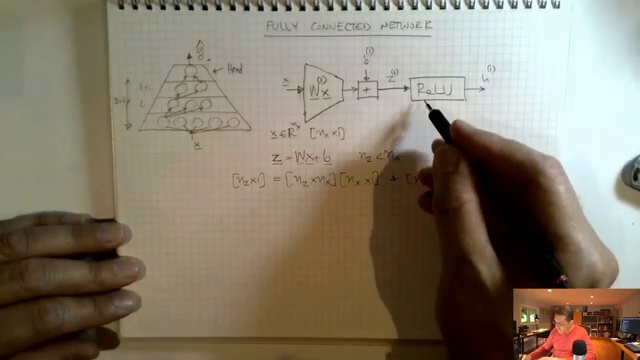 FULLY CONNECTED NETWORK
ŷ
Head
L+1
L
x
x
W x
(1)
+
b
(1)
z
(1)
ReLU
h
(1)
x ∈ R^nx [nx x1]
z = Wx + b nz < nx
[nz x1] = [nz x nx] [nx x1] + [n